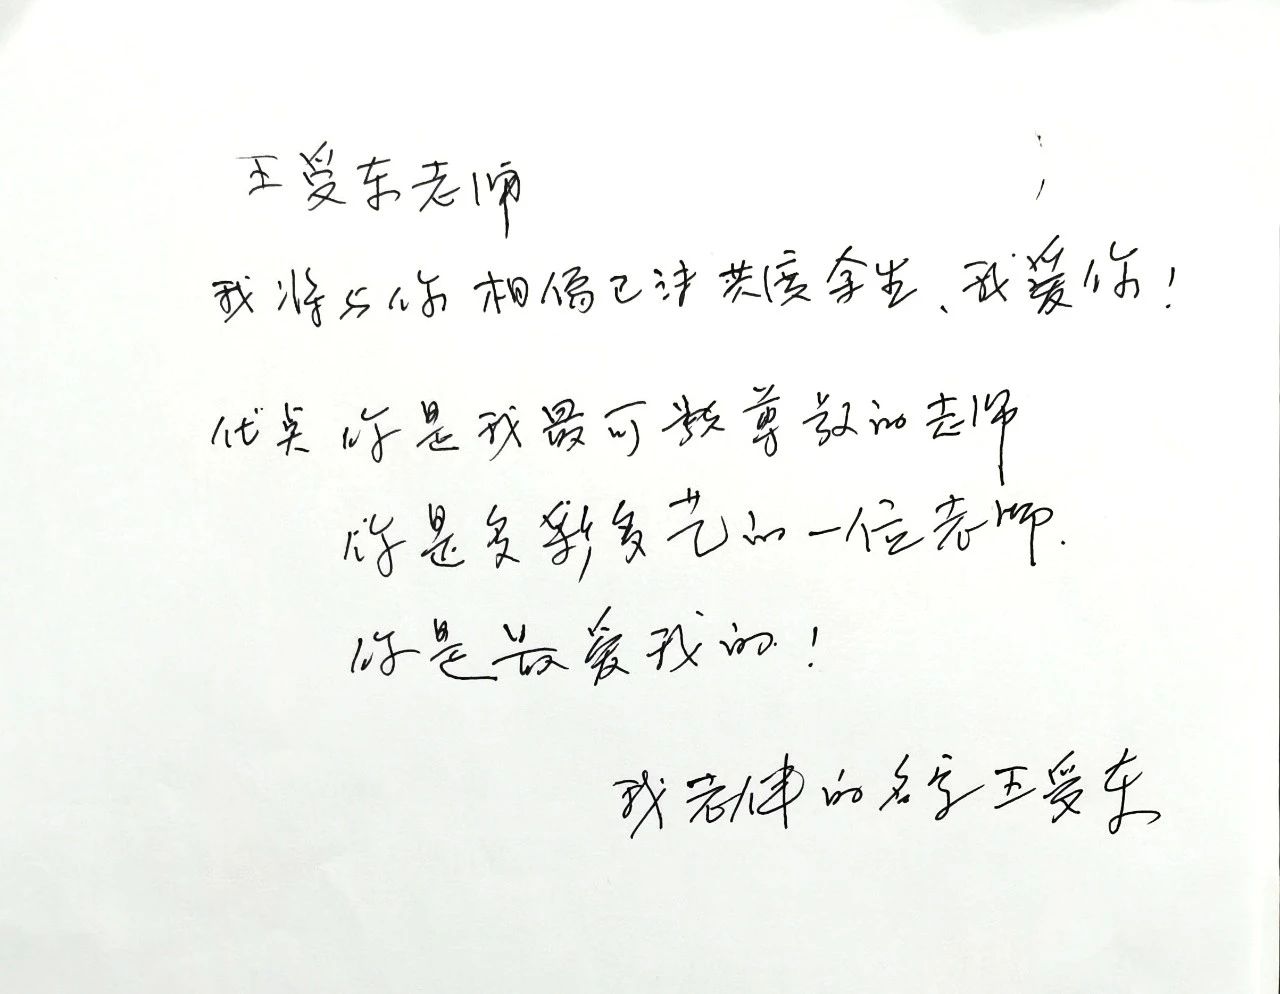 王受东老师
我将与你相偏已决共度余生、我爱你！
优点 你是我最可敬尊敬的老师
你是多彩多艺的一位老师.
你是最爱我的！
我老伴的名字王受东